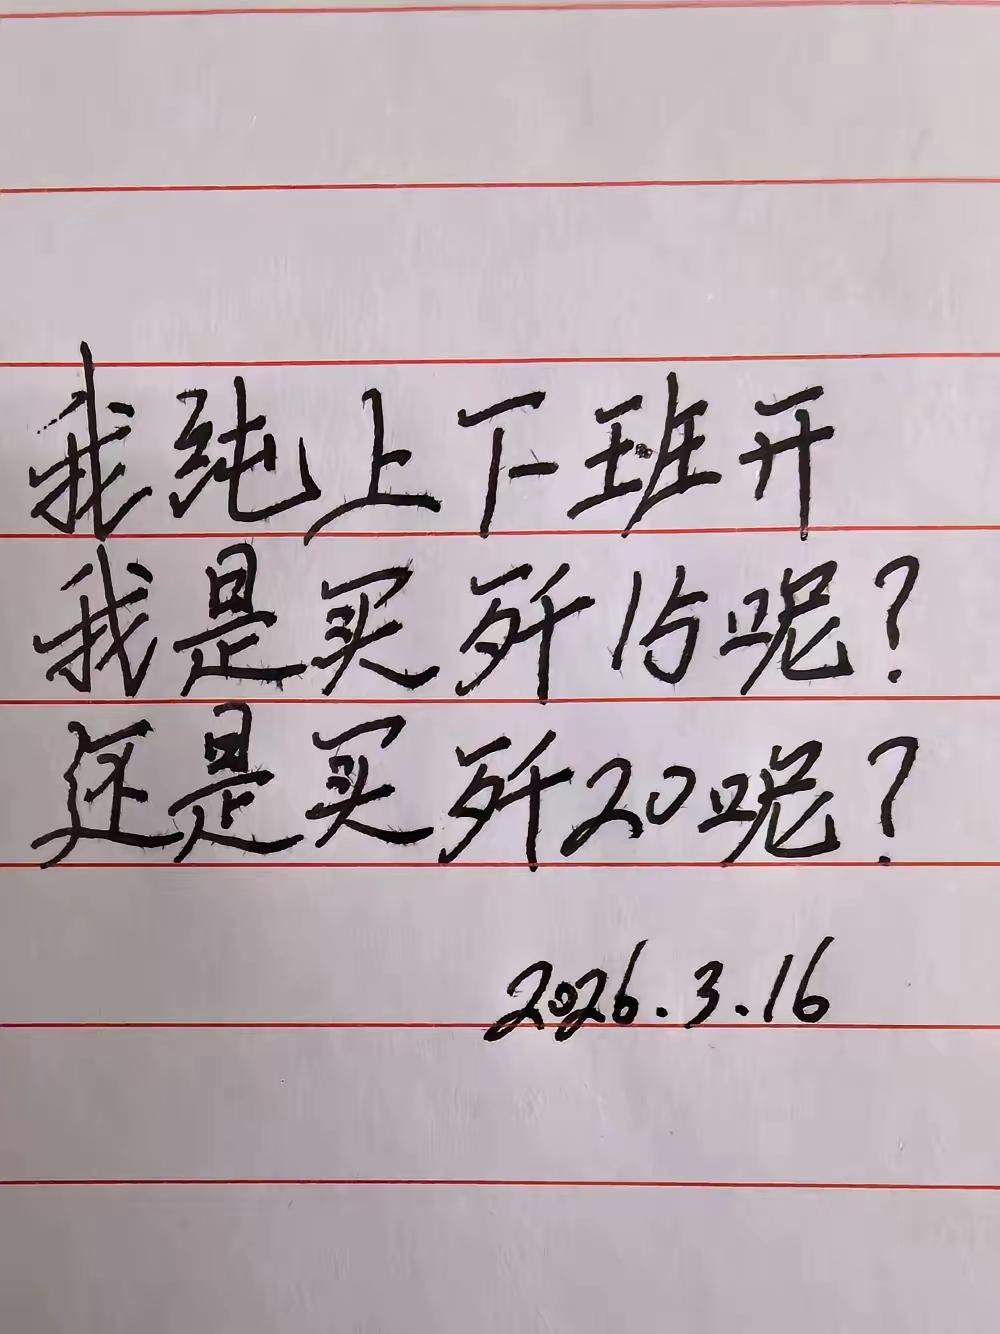 我纯上下班开
我是买歼15呢？
还是买歼20呢？
2026.3.16